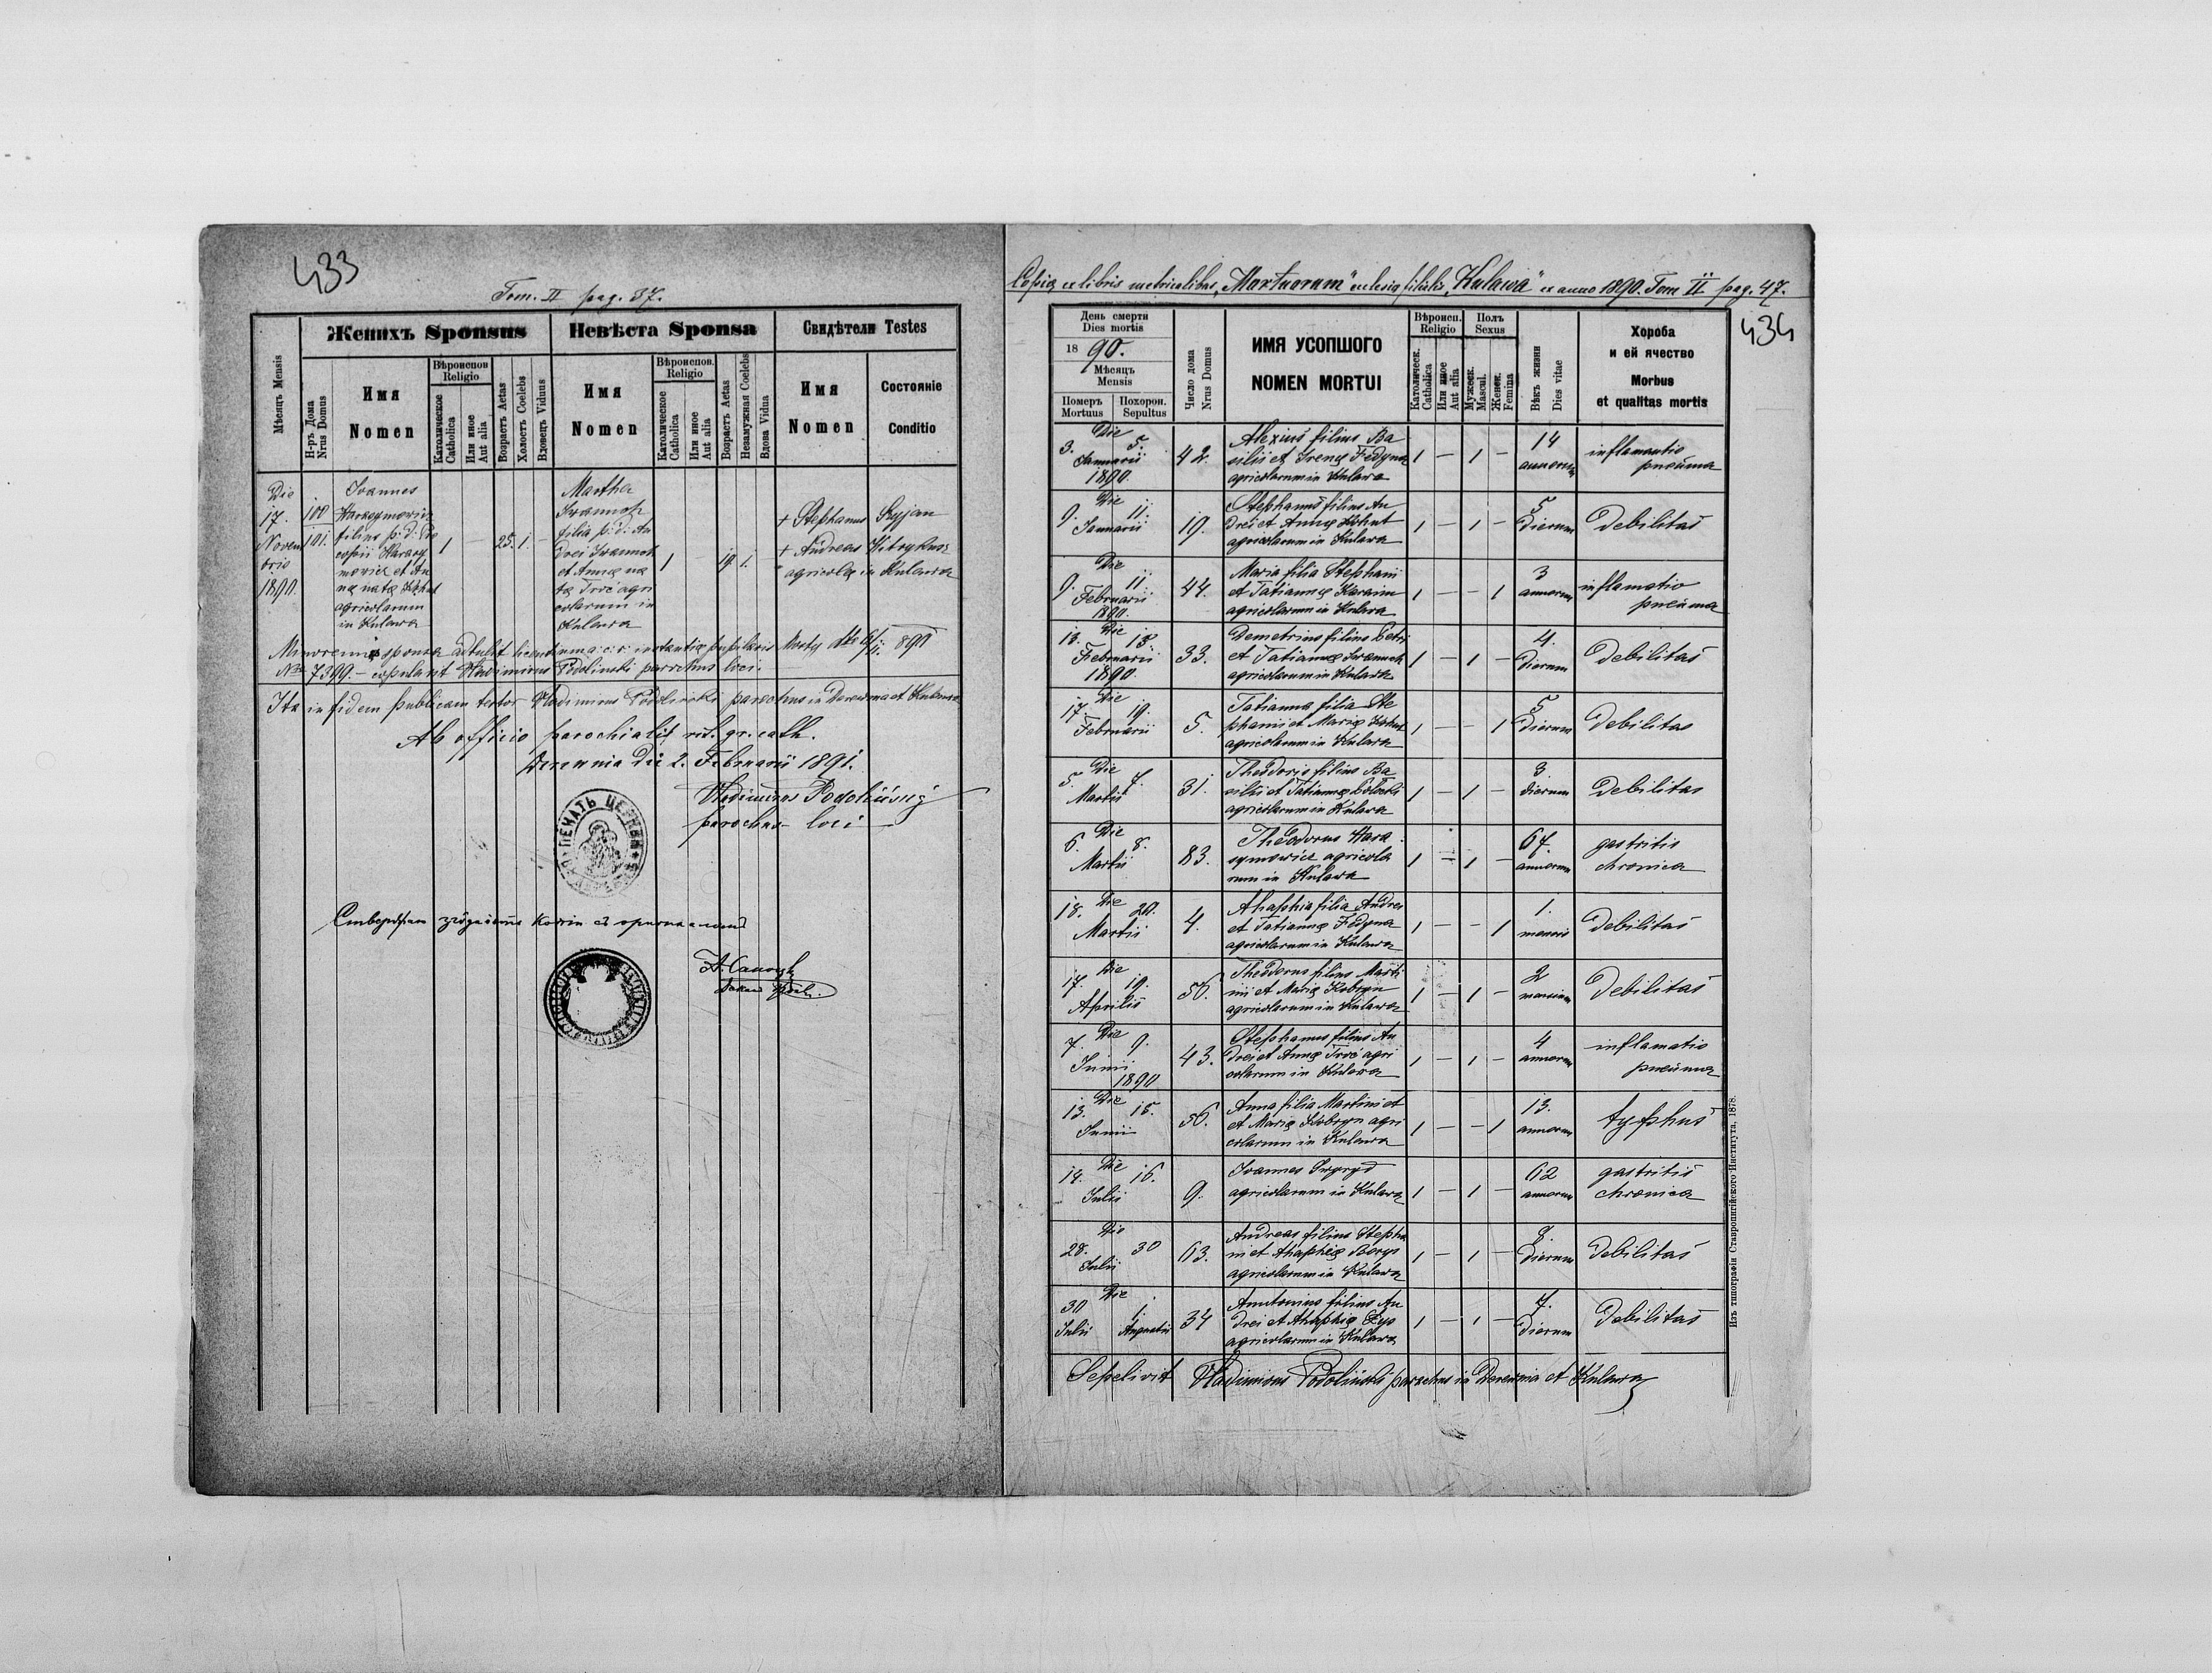 433
Tom. II pag. 37.
Женихъ Sponsus
Невѣста Sponsa
Свидѣтели Testes
Мѣсяцъ Mensis
Н-ръ Дома Nrus Domus
Имя Nomen
Вѣроиспов Religio
Католическое Catholica
Или иное Aut alia
Возрастъ Aetas
Холостъ Coelebs
Вдовецъ Viduus
Имя Nomen
Вѣроиспов. Religio
Католическое Catholica
Или иное Aut alia
Возрастъ Aetas
Незамужная Coelebs
Вдова Vidua
Имя Nomen
Состояніе Conditio
Die
17.
Novem
bris
1890.
100
101.
Joannes
Harasymowicz
filius p: d:
copii Harasy
mowicz et An
næ natæ Kohut
agricolarum
in Kulawa
1 — 25. 1. —
Martha
Iwanoch
filia p: d: An
drei Iwanoch
et Annæ na
tæ Troć agri
colarum in
Kulawa
1 — 19 1.
+ Stephanus Syjan
+ Andreas
agricolæ in Kulawa
Minorennis sponsa attulit
№ 7399. — copulavit Vladimirus Podolinski parochus loci.
Ita in fidem publicam testor Vladimirus Podolinski parochus in Derewnia et Kulawa
Ab officio parochiali rit. gr. cath.
Derewnia die 2. Februarii 1891.
Vladimirus Podolinskij
parochus loci
ПЕЧАТЬ ЦЕРКВИ
Copia ex libris metricalibus „Mortuorum" eclesiæ filialis „Kulawa" ex anno 1890. Tom II pag. 47.
434
День смерти Dies mortis
1890.
Мѣсяцъ Mensis
Померъ Mortuus
Похорон. Sepultus
Число дома Nrus Domus
ИМЯ УСОПШОГО
NOMEN MORTUI
Вѣроисп. Religio
Католическ. Catholica
Или иное Aut alia
Полъ Sexus
Мужеск. Mascul.
Женск. Femina
Вѣкъ жизни Dies vitae
Хороба
и ей ячество
Morbus
et qualitas mortis
Die 3. 5. Januarii 1890 42. Alexius filius Ba
silii et Irenæ Fedyna
agricolarum in Kulawa 1 — 1 — 14 annorum inflamatio pneuma
Die 9. 11. Januarii 19. Stephanus filius An
drei et Annæ Kohut
agricolarum in Kulawa 1 — 1 — 5 dierum debilitas
Die 9. 11. Februarii 1890. 44. Maria filia Stephani
et Tatiannæ Karaim
agricolarum in Kulawa 1 — — 1 3 annorum inflamatio pneuma
Die 13. 15. Februarii 1890. 33. Demetrius filius Petri
et Tatiannæ Iwanoch
agricolarum in Kulawa 1 — 1 — 4. dierum debilitas
Die 17. 19. Februarii 5. Tatianna filia Ste
phani et Mariæ Kohut
agricolarum in Kulawa 1 — — 1 5 dierum debilitas
Die 5. 7. Martii 31. Theodoris filius Ba
silii et Tatiannæ
agricolarum in Kulawa 1 — 1 — 3. dierum debilitas
Die 6. 8. Martii 83. Theodorus Hara
symowicz agricola
rum in Kulawa 1 — 1 — 67. annorum gastritis chronica
Die 18. 20. Martii 4. Ahaphia filia Andrei
et Tatiannæ Fedyna
agricolarum in Kulawa 1 — — 1 1. mensis debilitas
Die 17. 19. Aprilis 56. Theodorus filius Marti
ni et Mariæ Kobryn
agricolarum in Kulawa 1 — 1 — 2 mensium debilitas
Die 7. 9. Junii 1890 43. Stephanus filius An
drei et Annæ Troć agri
colarum in Kulawa 1 — 1 — 4 annorum inflamatio pneuma
Die 13. 15. Junii 56. Anna filia Martini et
et Mariæ Kobryn agri
colarum in Kulawa 1 — — 1 13. annorum typhus
Die 14. 16. Julii 9. Joannes
agricolarum in Kulawa 1 — 1 — 62 annorum gastritis chronica
Die 28. 30 Julii 63. Andreas filius Stepha
ni et Ahaphiæ
agricolarum in Kulawa 1 — 1 — dierum debilitas
Die 30 Julii 1. Augustii 34 Anntonius filius An
drei et Ahaphiæ
agricolarum in Kulawa 1 — 1 — 7. dierum debilitas
Sepelivit Vladimirus Podolinski parochus in Derewnia et Kulawa
Изъ типографіи Ставропигійского Института, 1878.